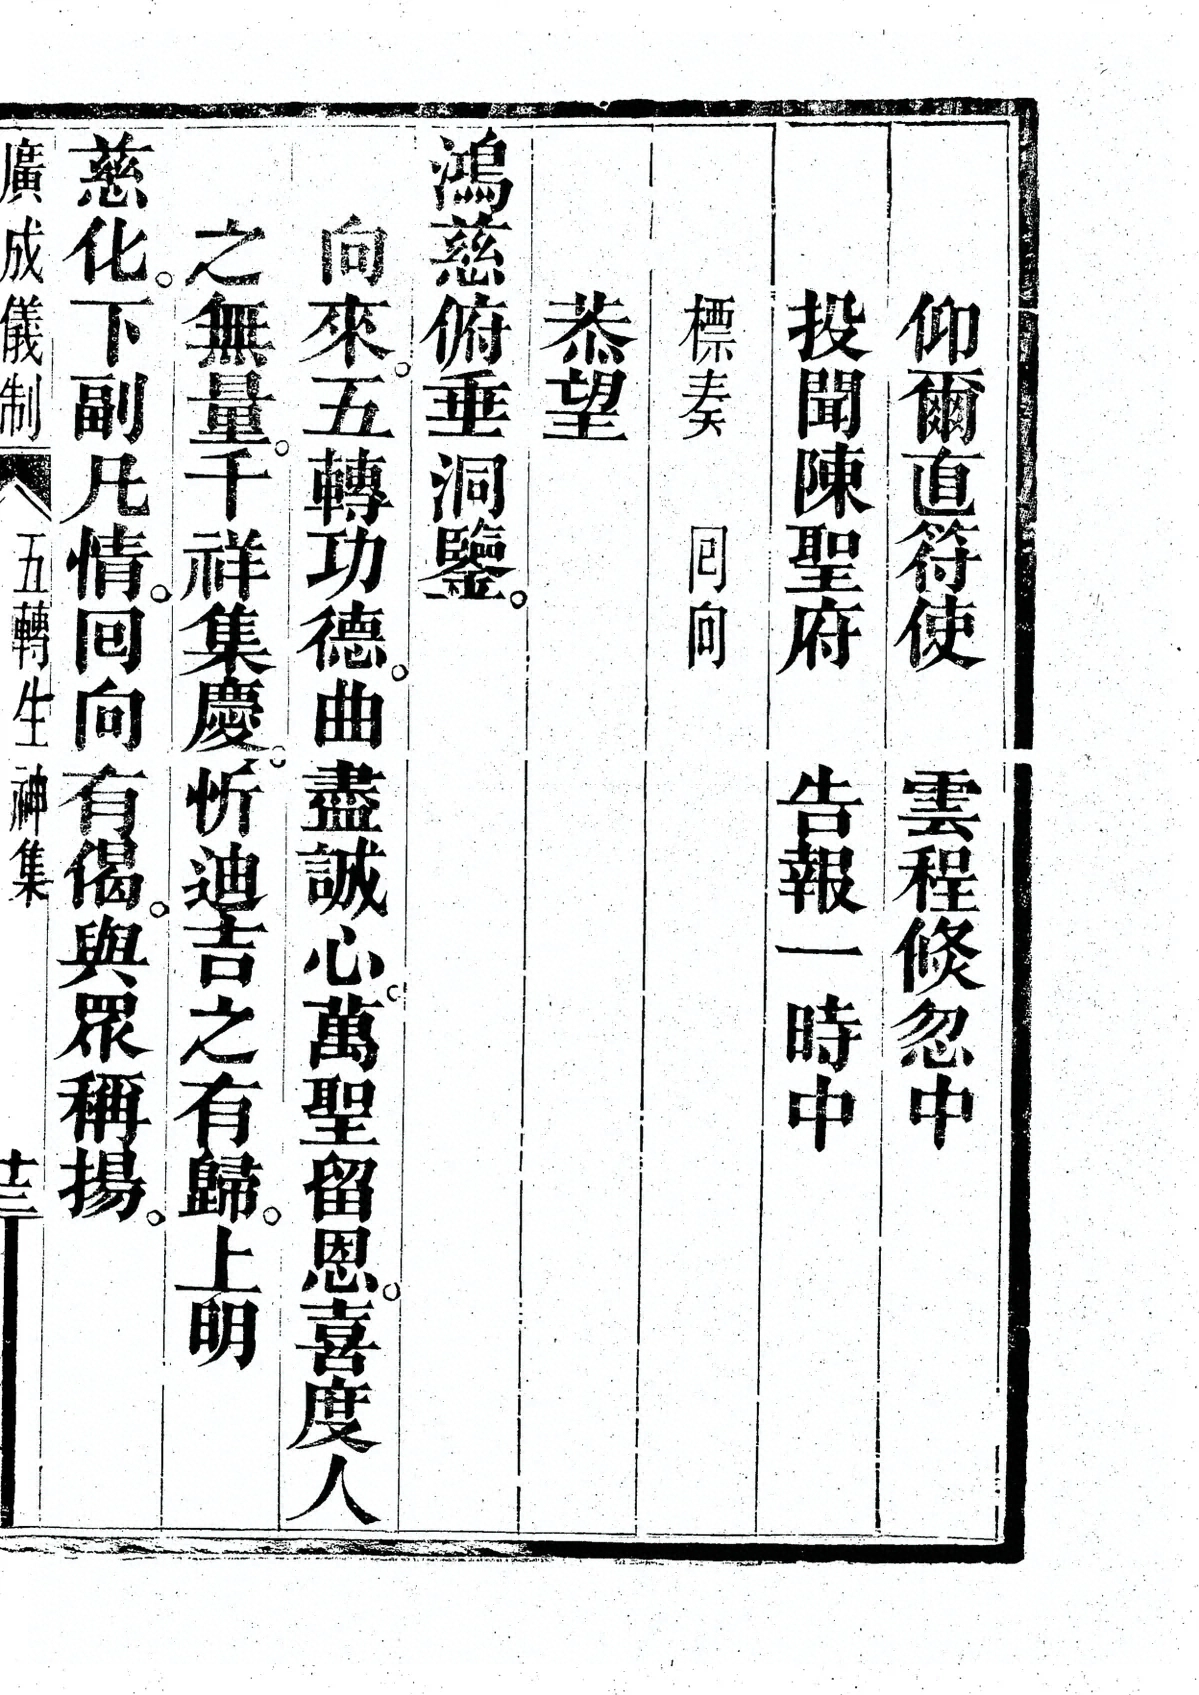 仰爾直符使　雲程倏忽中
投聞陳聖府　告報一時中
標奏　囘向
恭望
鴻慈俯垂洞鑒。
向來。五轉功德。曲盡誠心。萬聖留恩。喜度人
之無量。千祥集慶。忻迪吉之有歸。上明
慈化。下副凡情。回向有偈。與眾稱揚。
廣成儀制　五轉生神集　十三